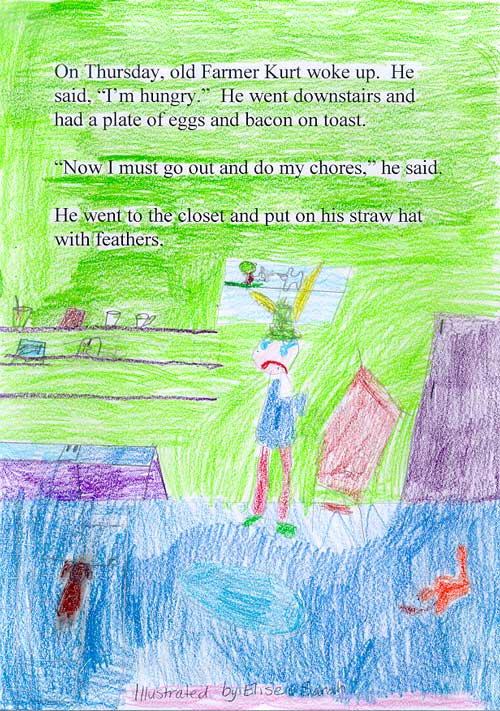 On Thursday, old Farmer Kurt woke up. He
said, “I’m hungry.” He went downstairs and
had a plate of eggs and bacon on toast.
“Now I must go out and do my chores,” he said.
He went to the closet and put on his straw hat
with feathers.
Illustrated by: Elise & Sarah